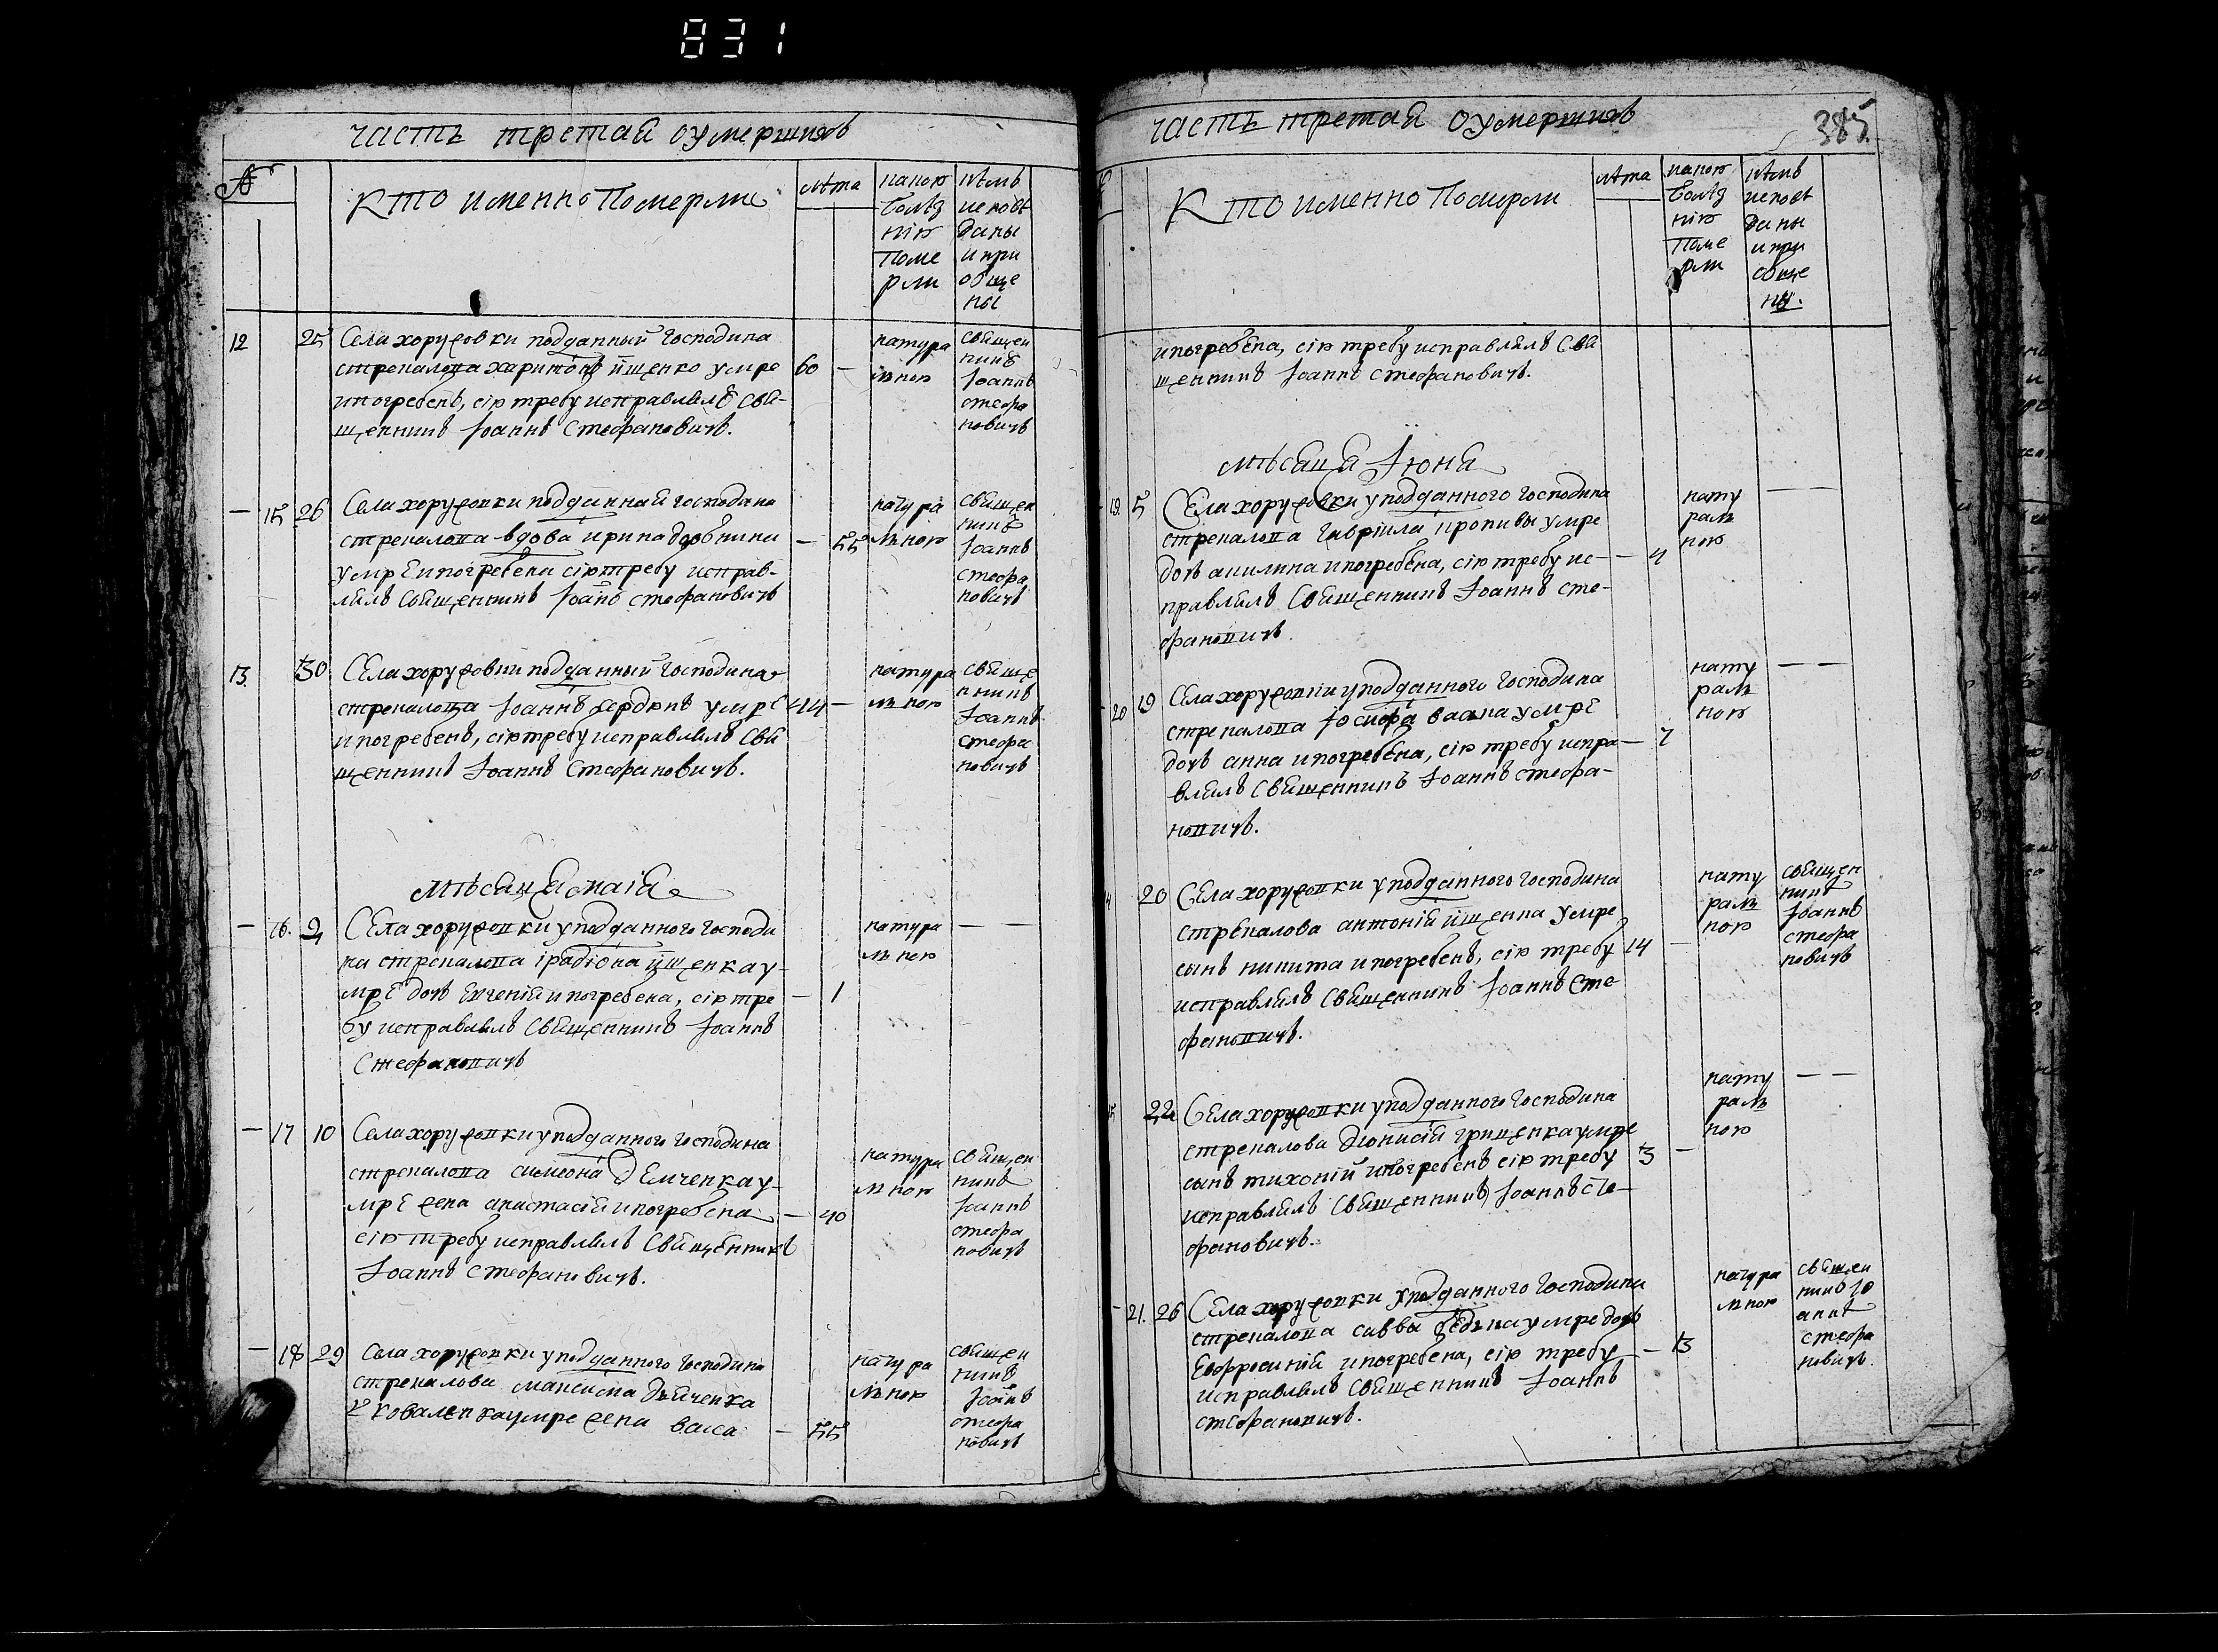 831
часть третая оумершихъ
№
кто именно померли
лѣта
какою болѣз нію поме рли
кѣмъ исповѣ даны и при обще ны
12 25 Села хоружовки подданный господина
стрекалова харитонъ ищенко умре 60 —
и погребенъ, сію требу исправлялъ свя-
щенникъ Іоаннъ Стефановичъ.
натура льною
священ никъ Іоаннъ стефа новичъ
— 15 26 Села хоружовки подданная господина
стрекалова вдова ирина
умре и погребена сію требу исправ-
лялъ священникъ Іоанъ стефановичъ
— 55
натура льною
священ никъ Іоаннъ стефа новичъ
13. 30 Села хоружовки подданный господина
стрекалова Іоаннъ умре 44 —
и погребенъ, сію требу исправлялъ свя
щенникъ Іоаннъ Стефановичъ.
натура льною
священ никъ Іоаннъ стефа новичъ
мѣсяця маія
— 16. 2 Села хоружовки у подданного господи
на стрекалова ірадіона ищенка у-
мре дочь Евгенія и погребена, сію тре — 1
бу исправлялъ священникъ Іоаннъ
Стефановичъ
натура льною
— —
— 17 10 Села хоружовки у подданного господина
стрекалова симеона демченка у-
мре жена анастасія и погребена — 40
сію требу исправлялъ священникъ
Іоаннъ стефановичъ.
натура льною
священ никъ Іоаннъ стефа новичъ
— 18 29 Села хоружовки у подданного господина
стрекалова максима
коваленка умре жена васса — 55
натура льною
священ никъ Іоаннъ стефа новичъ
часть третая оумершихъ
385.
кто именно померли
лѣта
какою болѣз нію поме рли
кѣмъ исповѣ даны и при обще ны.
и погребена, сію требу исправлялъ свя
щенникъ Іоаннъ стефановичъ.
мѣсяця Іюня
19. 5 Села хоружовки у подданного господина
стрекалова гавріила умре
дочь акилина и погребена, сію требу ис- — 4
правлялъ священникъ Іоаннъ сте-
фановичъ.
нату раль ною
— —
— 20 19 Села хоружовки у подданного господина
стрекалова Іосифа умре
дочь анна и погребена, сію требу испра — 7
влялъ священникъ Іоаннъ стефа-
новичъ.
нату раль ною
— —
20 Села хоружовки у подданного господина
стрекалова антонія ищенка умре
сынъ никита и погребенъ, сію требу 14 —
исправлялъ священникъ Іоаннъ Сте
фановичъ.
нату раль ною
священ никъ Іоаннъ стефа новичъ
15 22 Села хоружовки у подданного господина
стрекалова діонисія грищенка умре
сынъ тихоній и погребенъ сію требу 3 —
исправлялъ священникъ Іоаннъ сте-
фановичъ.
нату раль ною
— —
— 21. 26 Села хоружовки у подданного господина
стрекалова саввы умре дочь
Евфросинія и погребена, сію требу — 13
исправлялъ священникъ Іоаннъ
стефановичъ.
натура льною
священ никъ Іо аннъ стефа новичъ.